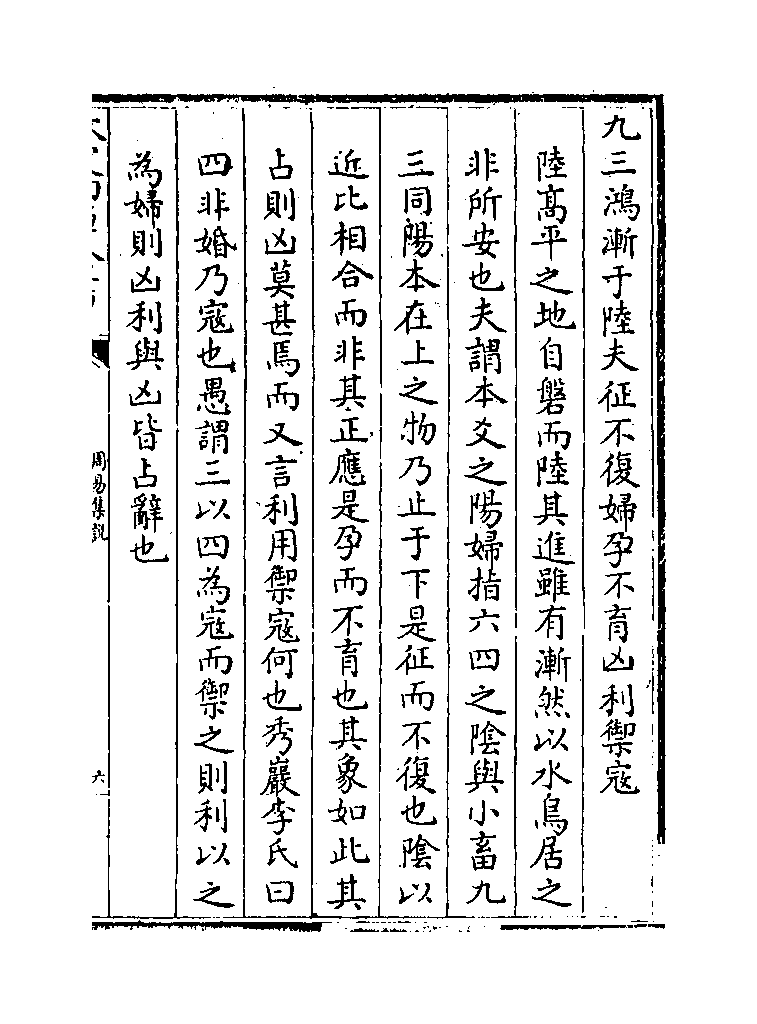 九三鴻漸于陸夫征不復婦孕不育凶利禦寇
陸髙平之地自磐而陸其進雖有漸然以水鳥居之
非所安也夫謂本爻之陽婦指六四之隂與小畜九
三同陽本在上之物乃止于下是征而不復也隂以
近比相合而非其正應是孕而不育也其象如此其
占則凶莫甚焉而又言利用禦寇何也秀巖李氏曰
四非婚乃寇也愚謂三以四為寇而禦之則利以之
為婦則凶利與凶皆占辭也
周易集説
六